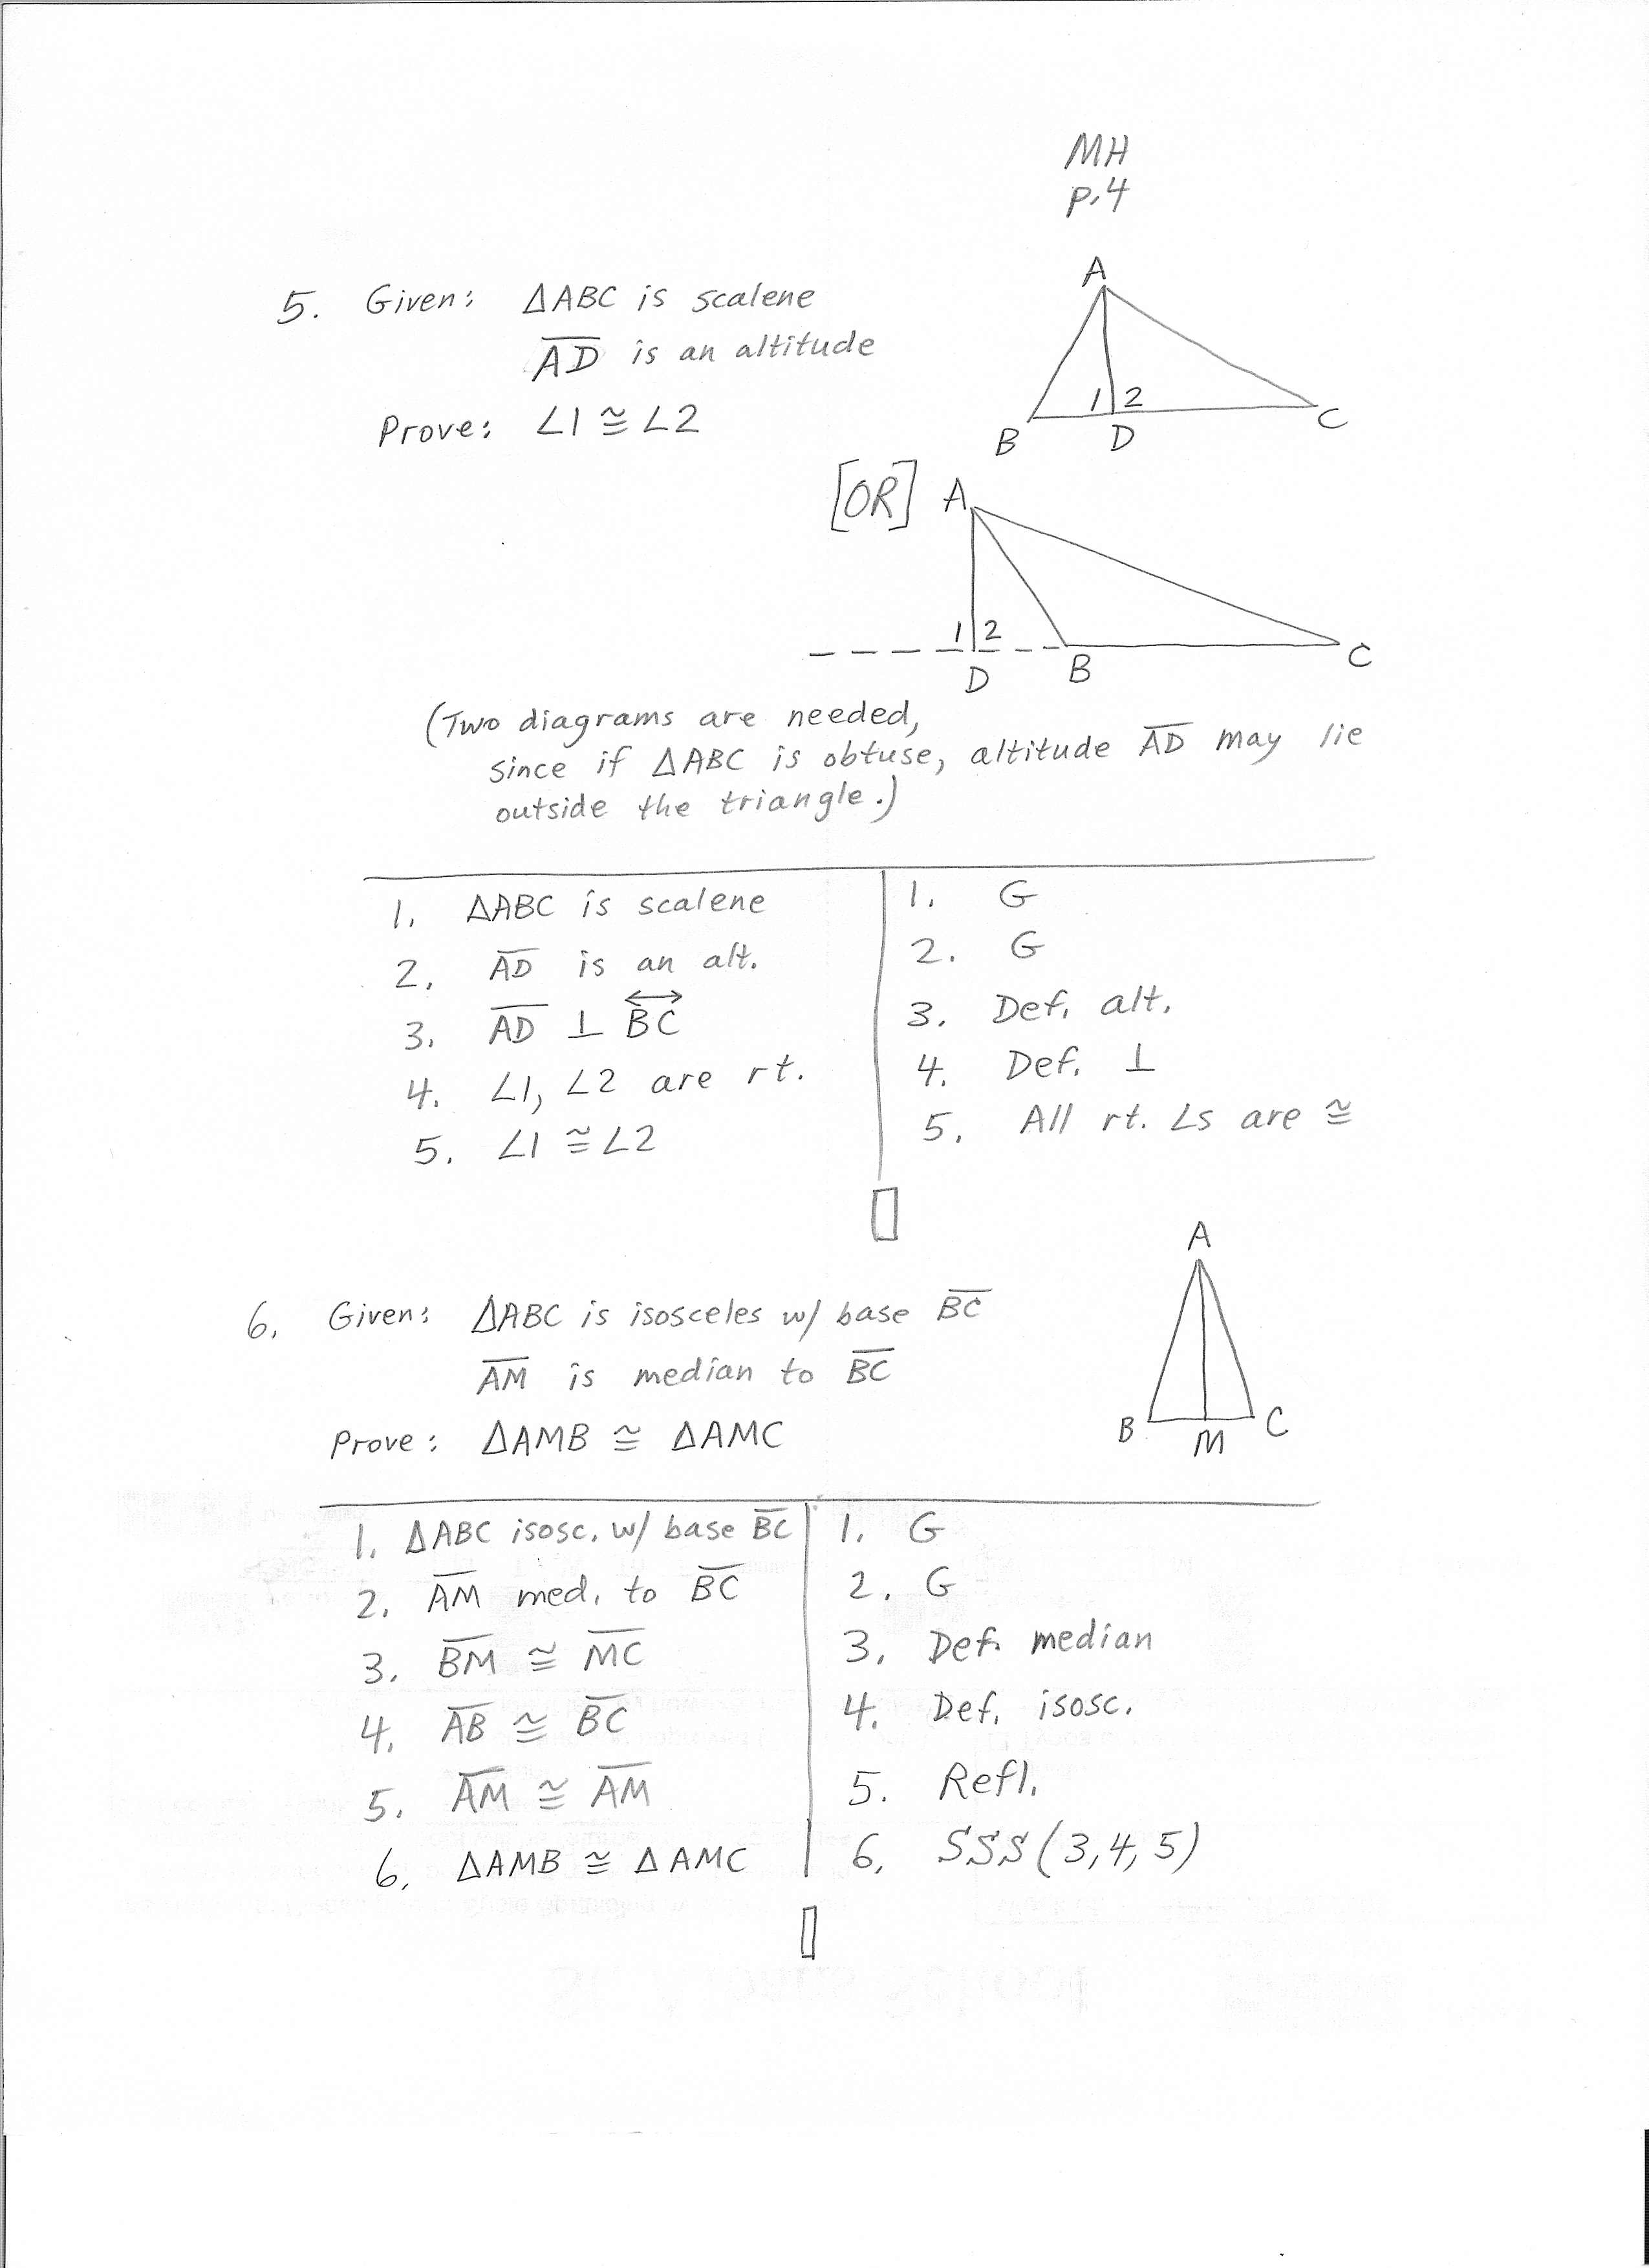 MH
p.4
5. Given: △ABC is scalene
A̅D̅ is an altitude
Prove: ∠1 ≅ ∠2
A
1 2
B D C
[OR] A
1 2
D B C
(Two diagrams are needed,
since if △ABC is obtuse, altitude A̅D̅ may lie
outside the triangle.)
1. △ABC is scalene 1. G
2. A̅D̅ is an alt. 2. G
3. A̅D̅ ⊥ B͡C↔ 3. Def. alt.
4. ∠1, ∠2 are rt. 4. Def. ⊥
5. ∠1 ≅ ∠2 5. All rt. ∠s are ≅
A
6. Given: △ABC is isosceles w/ base B̅C̅
A̅M̅ is median to B̅C̅
Prove: △AMB ≅ △AMC
B M C
1. △ABC isosc. w/ base B̅C̅ 1. G
2. A̅M̅ med. to B̅C̅ 2. G
3. B̅M̅ ≅ M̅C̅ 3. Def. median
4. A̅B̅ ≅ B̅C̅ 4. Def. isosc.
5. A̅M̅ ≅ A̅M̅ 5. Refl.
6. △AMB ≅ △AMC 6. SSS (3,4,5)